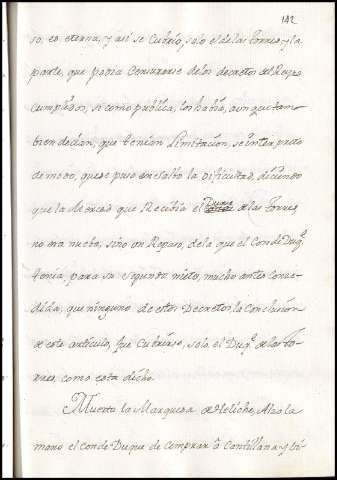 142
so, es eterna, y asi se Cubrio, solo el de las Torres, y la
parte, que podia Censurarse de los decretos del Rey no
Cumplidos, si como publica, los havia, aunque tam-
bien decian, que tenian Limitacion, se inter preto
de modo, que se puso en salto la Dificultad, diciendo
que la Merced que Recibia el Duque de las Torres,
no era nueba, sino un Reparo, de la que el Conde Duq.e
tenia, para su Segundo nieto, mucho antes Conce-
dida, que ninguno de estos Decretos, la Conclusion
de este articulo, fue Cubrirse, solo el Duq.e de las To-
rres, como esta dicho.
Muerta la Marquesa de Heliche, Alzo la
mano el conde Duque de comprar á Cantillana, y bi-